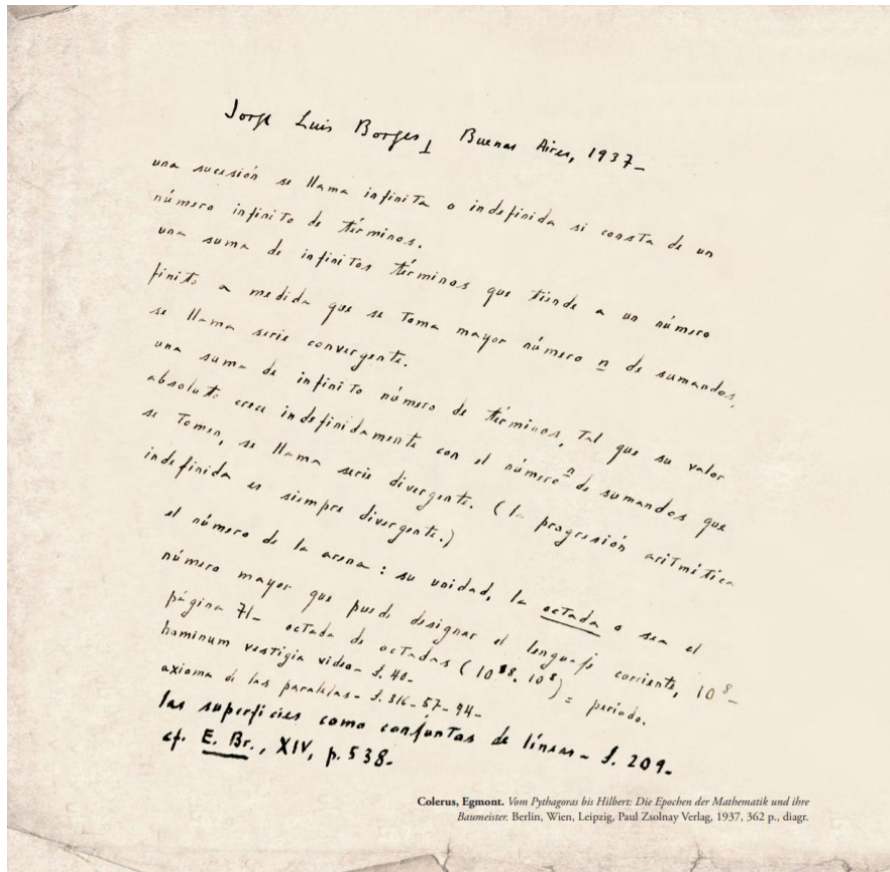 Jorge Luis Borges, Buenos Aires, 1937_
una sucesión se llama infinita o indefinida si consta de un
número infinito de términos.
una suma de infinitos términos que tiende a un número
finito a medida que se toma mayor número n de sumandos,
se llama serie convergente.
una suma de infinito número de términos, tal que su valor
absoluto crece indefinidamente con el número n de sumandos que
se tomen, se llama serie divergente. (la progresión aritmética
indefinida es siempre divergente.)
el número de la arena: su unidad, la octada o sea el
número mayor que puede designar el lenguaje corriente, 10⁸_
página 71_ octada de octadas (10⁸⁸. 10⁸) = periodo.
hominum vestigia video_ S. 40_
axioma de las paralelas_ S. 316_57_94_
las superficies como conjuntos de líneas_ S. 209_
cf. E. Br., XIV, p. 538_
Colerus, Egmont. Vom Pythagoras bis Hilbert: Die Epochen der Mathematik und ihre
Baumeister. Berlin, Wien, Leipzig, Paul Zsolnay Verlag, 1937, 362 p., diagr.